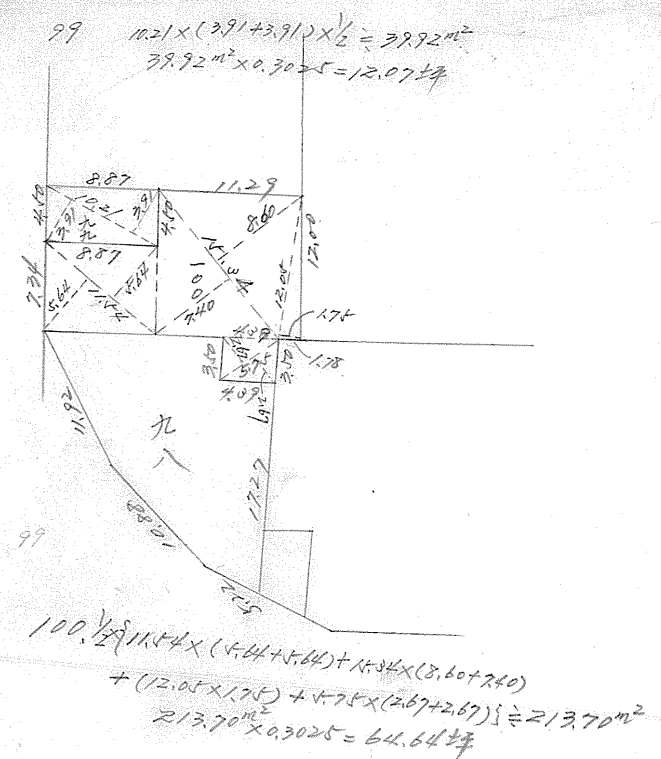 99
10.21×(3.91+3.91)×1/2≒39.92m²
39.92m²×0.3025=12.07坪
8.87
11.29
4.50
10.21
3.91
3.91
九九
4.50
8.60
12.00
8.87
7.34
5.64
5.64
11.54
15.34
100
7.40
12.05
1.75
1.78
3.50
2.67
5.75
3.50
4.39
2.67
11.92
九八
17.27
10.88
99
5.22
100. 1/2×{11.54×(5.64+5.64)+15.34×(8.60+7.40)
+(12.05×1.75)+5.75×(2.67+2.67)}≒213.70m²
213.70m²×0.3025=64.64坪